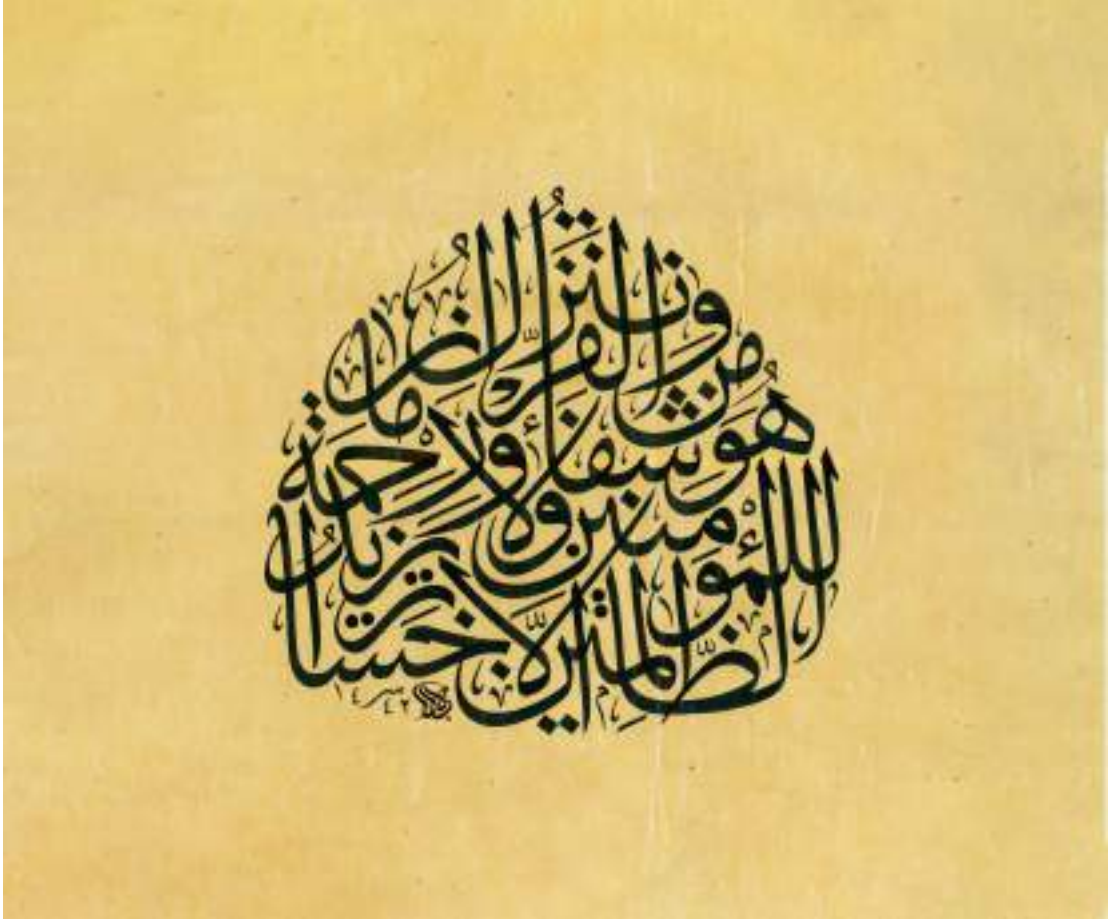 وَنُنَزِّلُ مِنَ الْقُرْآنِ مَا
هُوَ شِفَاءٌ وَرَحْمَةٌ
لِلْمُؤْمِنِينَ وَلَا يَزِيدُ
الظَّالِمِينَ إِلَّا خَسَارًا